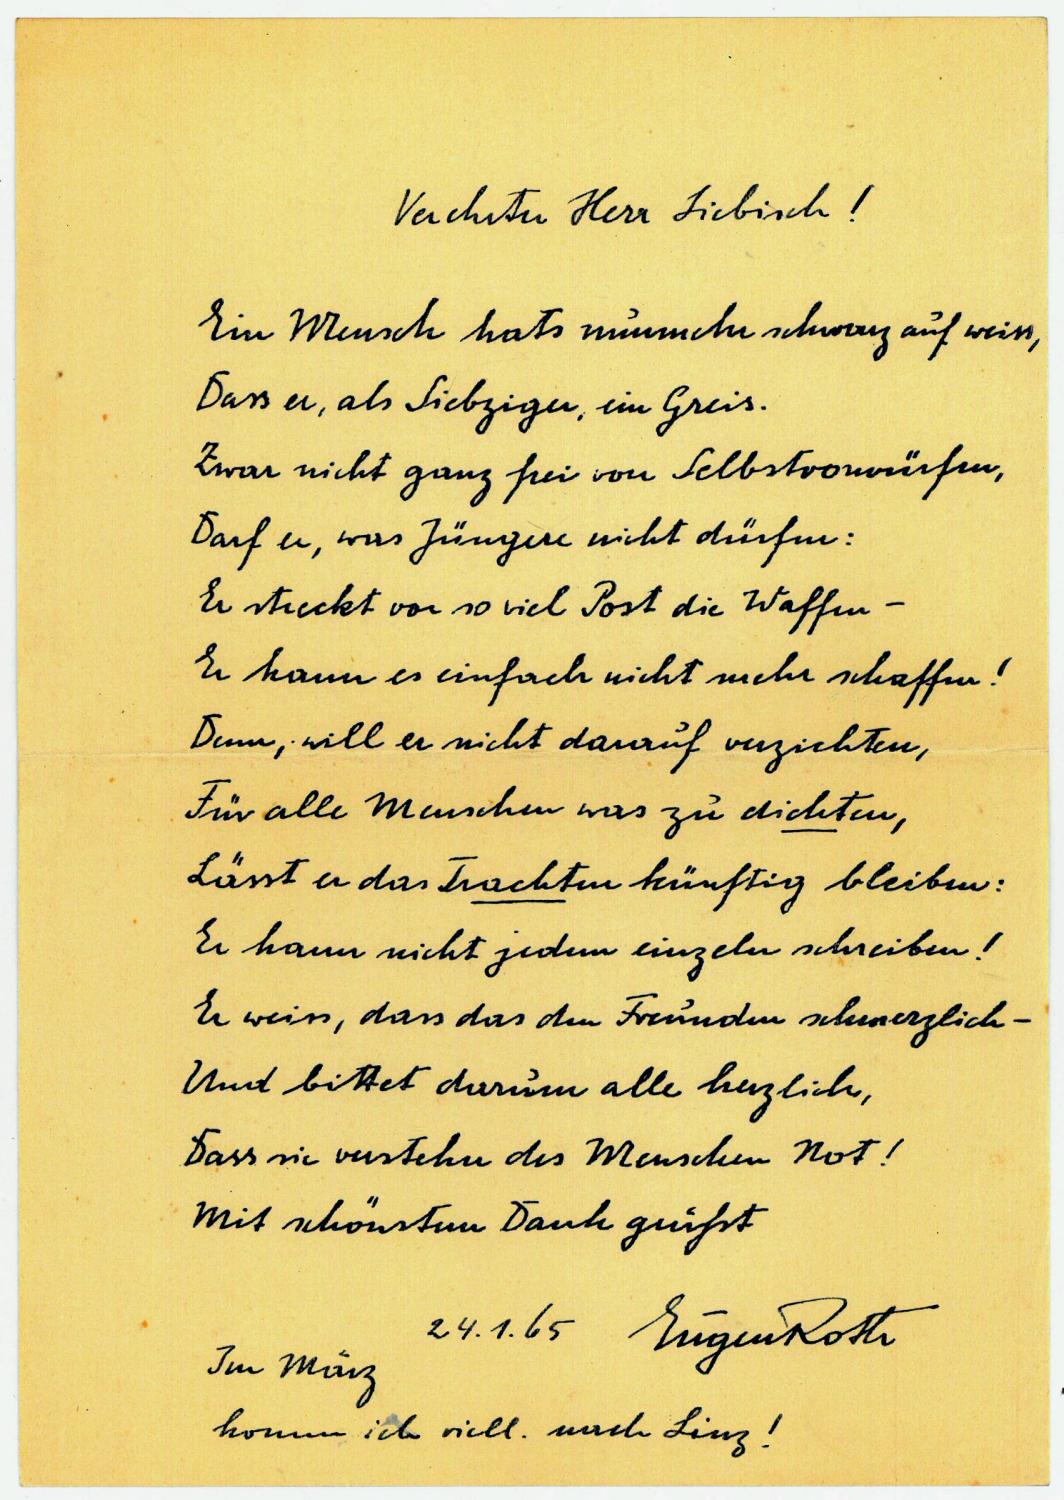 Verehrter Herr Liebisch!
Ein Mensch hats nunmehr schwarz auf weiss,
Dass er, als Siebziger, ein Greis.
Zwar nicht ganz frei von Selbstvorwürfen,
Darf er, was Jüngere nicht dürfen:
Er streckt vor so viel Post die Waffen –
Er kann es einfach nicht mehr schaffen!
Denn, will er nicht darauf verzichten,
Für alle Menschen was zu dichten,
Lässt er das Trachten künftig bleiben:
Er kann nicht jedem einzeln schreiben!
Er weiss, dass das den Freunden schmerzlich –
Und bittet darum alle herzlich,
Dass sie verstehn des Menschen Not!
Mit schönstem Dank grüßt
24.1.65 Eugen Roth
Im März
komm ich viell. nach Linz!